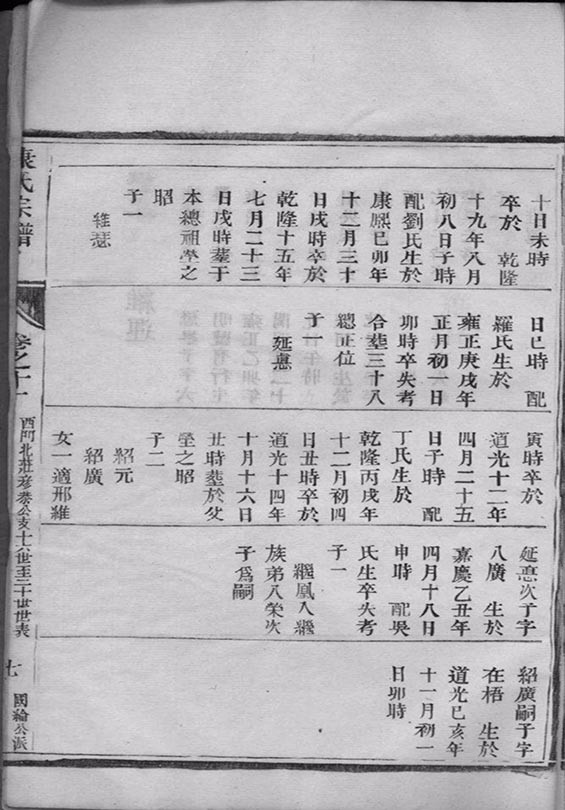 十日未時
卒於 乾隆
十九年八月
初八日子時
配劉氏生於
康熙巳卯年
十二月三十
日戌時卒於
乾隆十五年
七月二十三
日戌時塟于
本總祖塋之
昭
子一
維瑟
日巳時 配
羅氏生於
雍正庚戌年
正月初一日
卯時卒失考
合塟三十八
總正位
子一
延憙
寅時卒於
道光十二年
四月二十五
日子時 配
丁氏生於
乾隆丙戌年
十二月初四
日丑時卒於
道光十四年
十月十六日
丑時塟於父
塋之昭
子二
紹元
紹廣
女一適邢維
延憙次子字
八廣 生於
嘉慶乙丑年
四月十八日
申時 配吳
氏生卒失考
子一
繼鳳入繼
族弟八榮次
子爲嗣
紹廣嗣子字
在梧 生於
道光巳亥年
十一月初一
日卯時
氏宗譜
卷之十一
西門北莊彦恭公支十六世至二十世世表
七
國綸公派